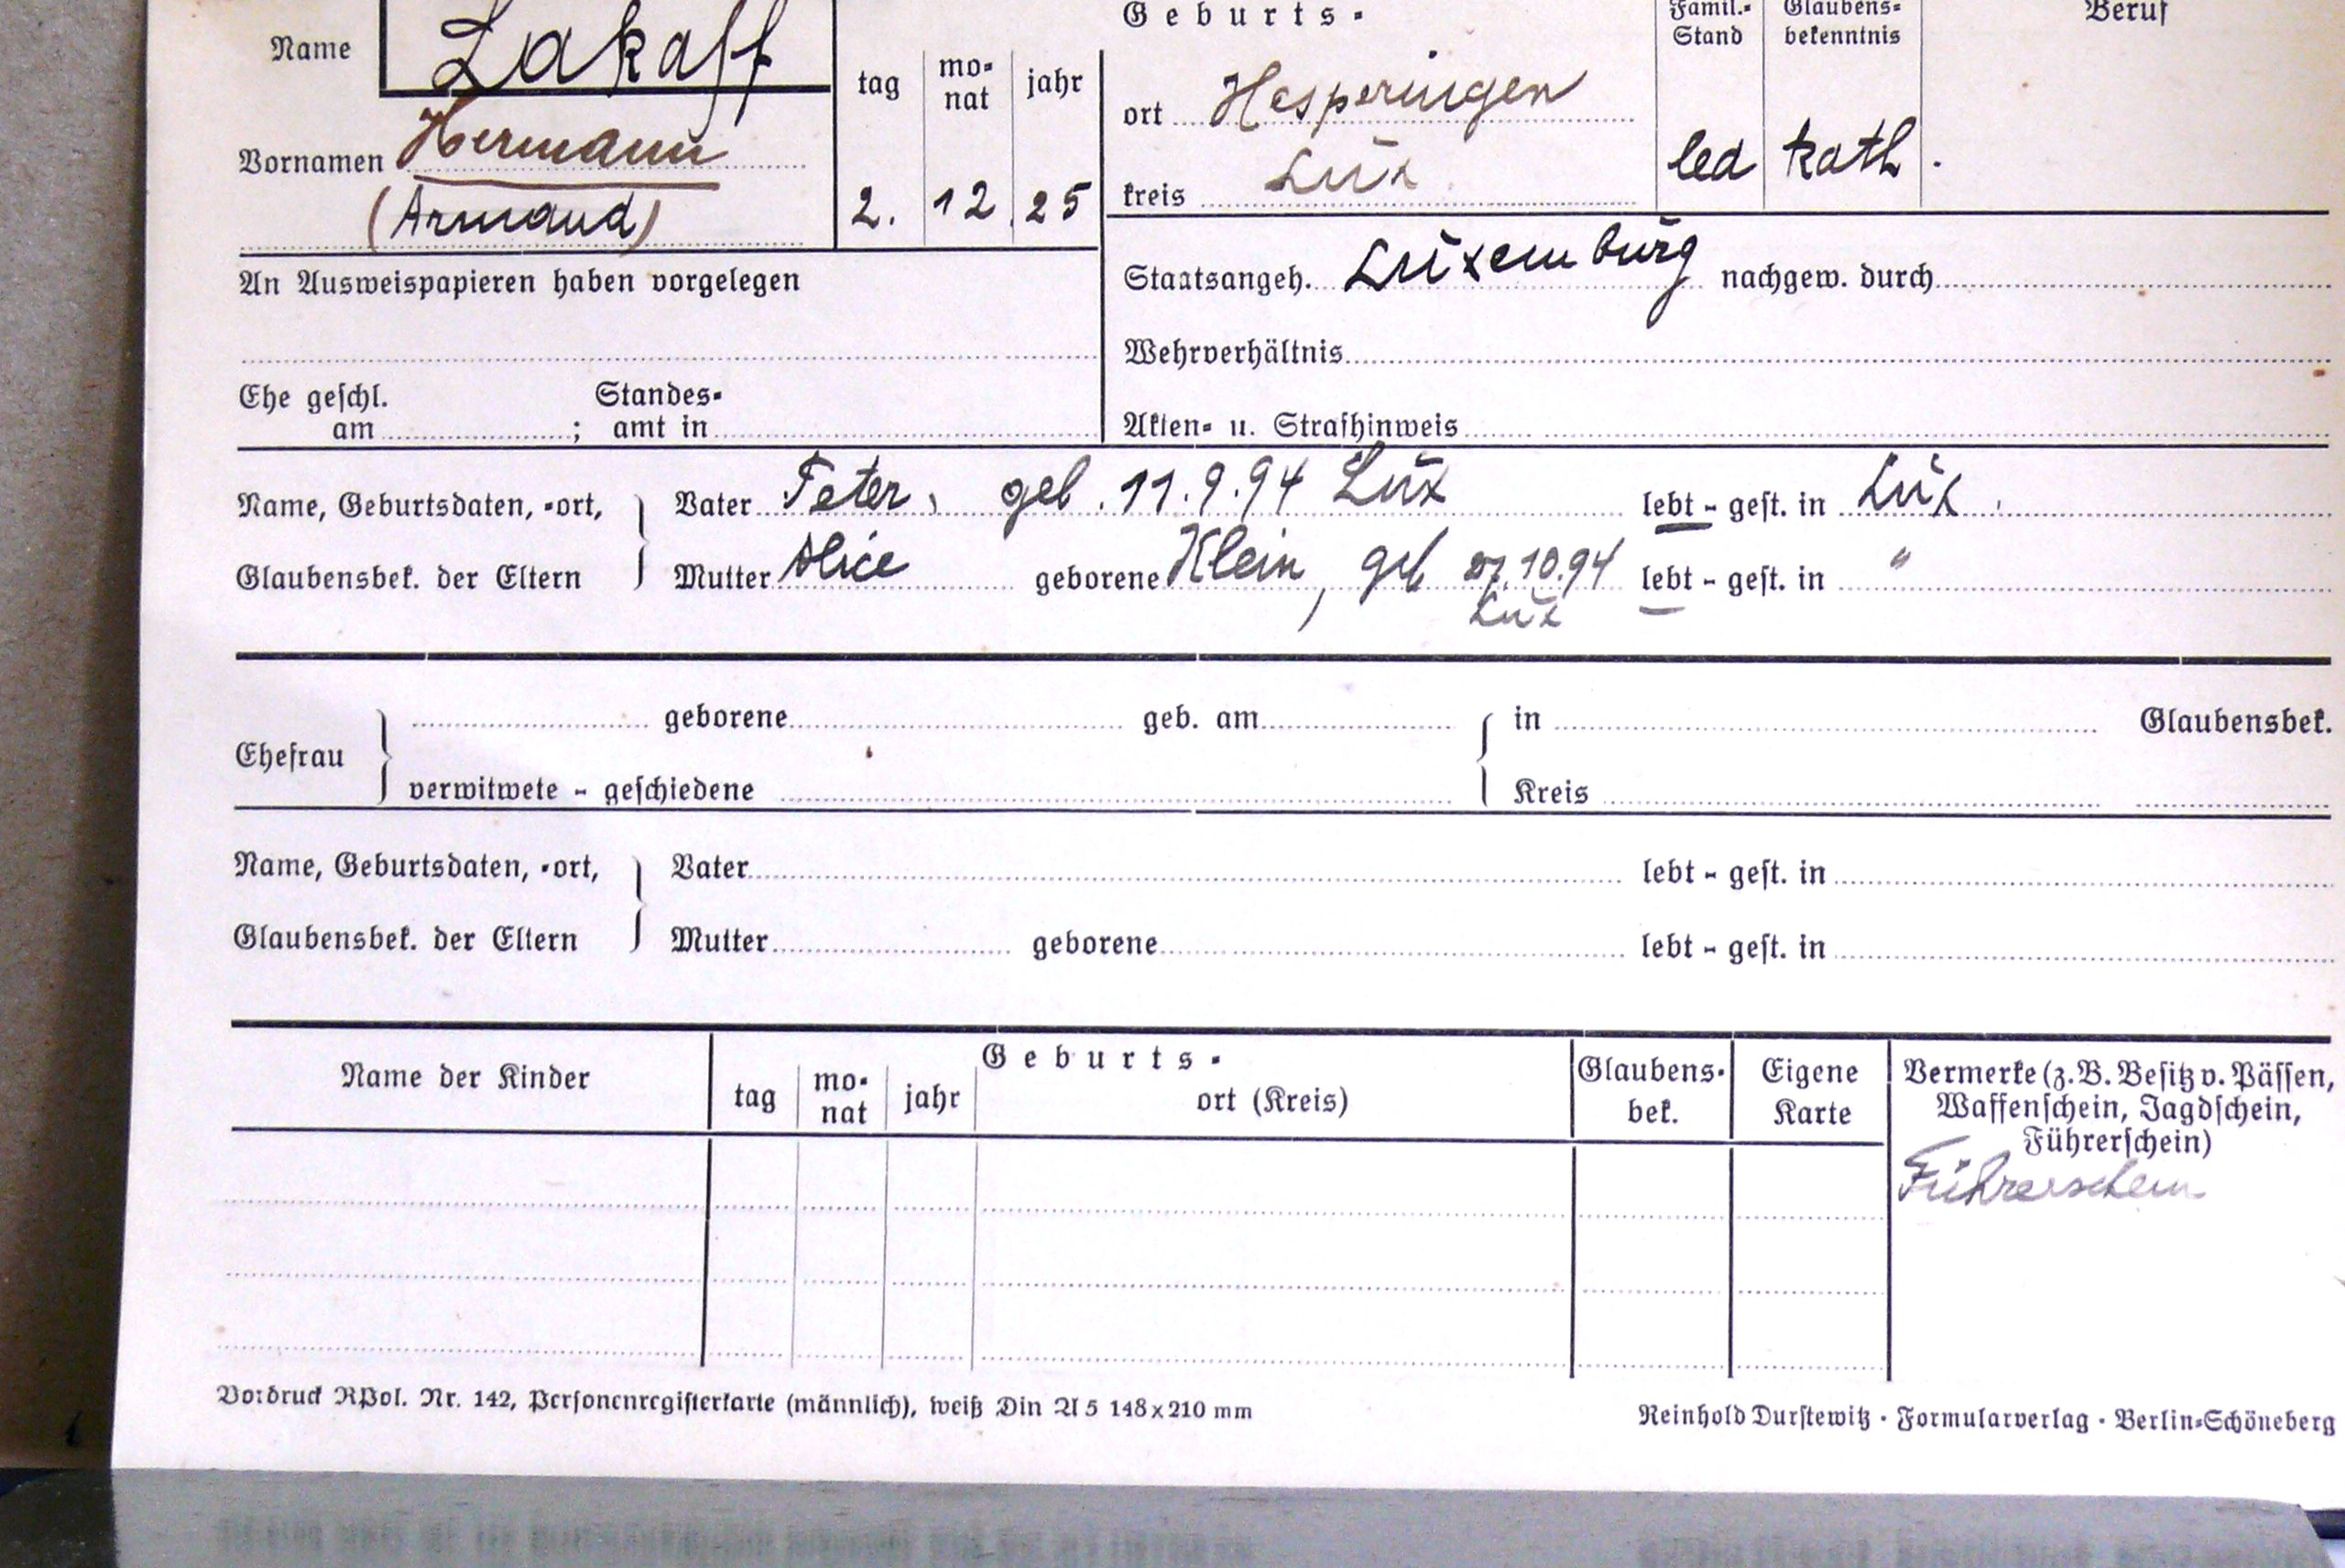 Name Lakaff
Vornamen Hermann
(Armand)
Geburts-
tag monat jahr
2. 12. 25
ort Hesperingen
kreis Lux.
Famil.-Stand
led
Glaubens-bekenntnis
kath.
Beruf
An Ausweispapieren haben vorgelegen
Staatsangeh. Luxemburg nachgew. durch
Wehrverhältnis
Ehe geschl. am ; Standesamt in
Akten- u. Strafhinweis
Name, Geburtsdaten, -ort, Vater Peter, geb. 11.9.94 Lux lebt - gest. in Lux.
Glaubensbek. der Eltern Mutter Alice geborene Klein, geb 10.94 lebt - gest. in "
Lux
Ehefrau geborene geb. am in Glaubensbek.
verwitwete - geschiedene Kreis
Name, Geburtsdaten, -ort, Vater lebt - gest. in
Glaubensbek. der Eltern Mutter geborene lebt - gest. in
Name der Kinder
Geburts-
tag monat jahr ort (Kreis)
Glaubens-bek.
Eigene Karte
Vermerke (z. B. Besitz v. Pässen,
Waffenschein, Jagdschein,
Führerschein)
Führerschein
Vordruck RPol. Nr. 142, Personenregisterkarte (männlich), weiß Din A 5 148x210 mm
Reinhold Durstewitz · Formularverlag · Berlin-Schöneberg